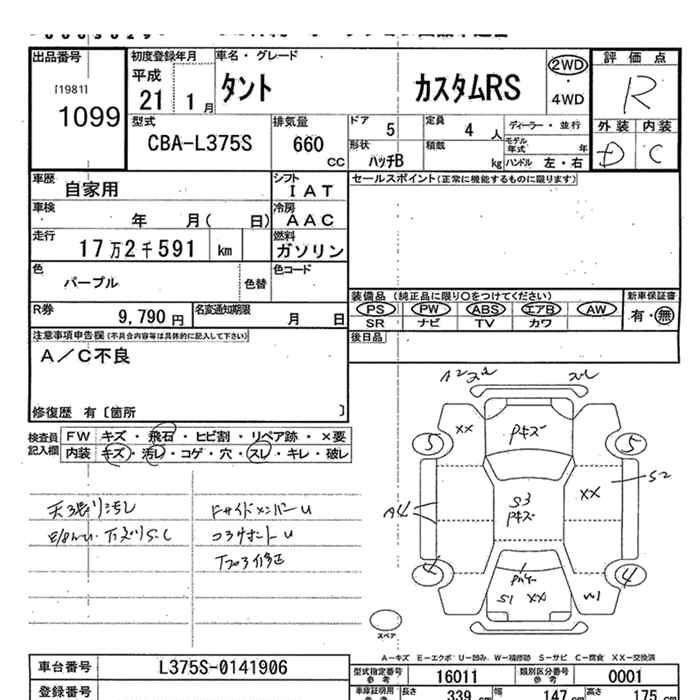 出品番号
[1981]
1099
初度登録年月
平成
21 1月
車名・グレード
タント カスタムRS
2WD
・
4WD
評価点
R
外装 内装
D C
型式
CBA-L375S
排気量
660
CC
ドア 5
定員 4人
ディーラー・並行
形状 ハッチB
積載 kg
モデル年式 年
ハンドル 左・右
車歴
自家用
シフト
IAT
セールスポイント(正常に機能するものに限ります)
車検
年 月( 日)
冷房
AAC
走行
17万2千591 km
燃料
ガソリン
色
パープル
色替
色コード
装備品 (純正品に限り○をつけてください)
新車保証書
PS PW ABS エアB AW
有・無
SR ナビ TV カワ
R券
9,790円
名変通知期限
月 日
後日品
注意事項申告欄(不具合内容等は具体的に記入して下さい)
A/C不良
修復歴 有〔箇所 〕
検査員
記入欄
FW キズ・飛石・ヒビ割・リペア跡・×要
内装 キズ・汚レ・コゲ・穴・スレ・キレ・破レ
A2
XX
Pキズ
5
5
S2
A4
S3
Pキズ
XX
4
4
S1 XX
W1
スペア
A-キズ E-エクボ U-凹み W-補修跡 S-サビ C-腐食 XX-交換済
車台番号
L375S-0141906
型式指定番号
参考
16011
類別区分番号
参考
0001
登録番号
車庫証明用
参考
長さ 339 cm 幅 147 cm 高さ 175 cm